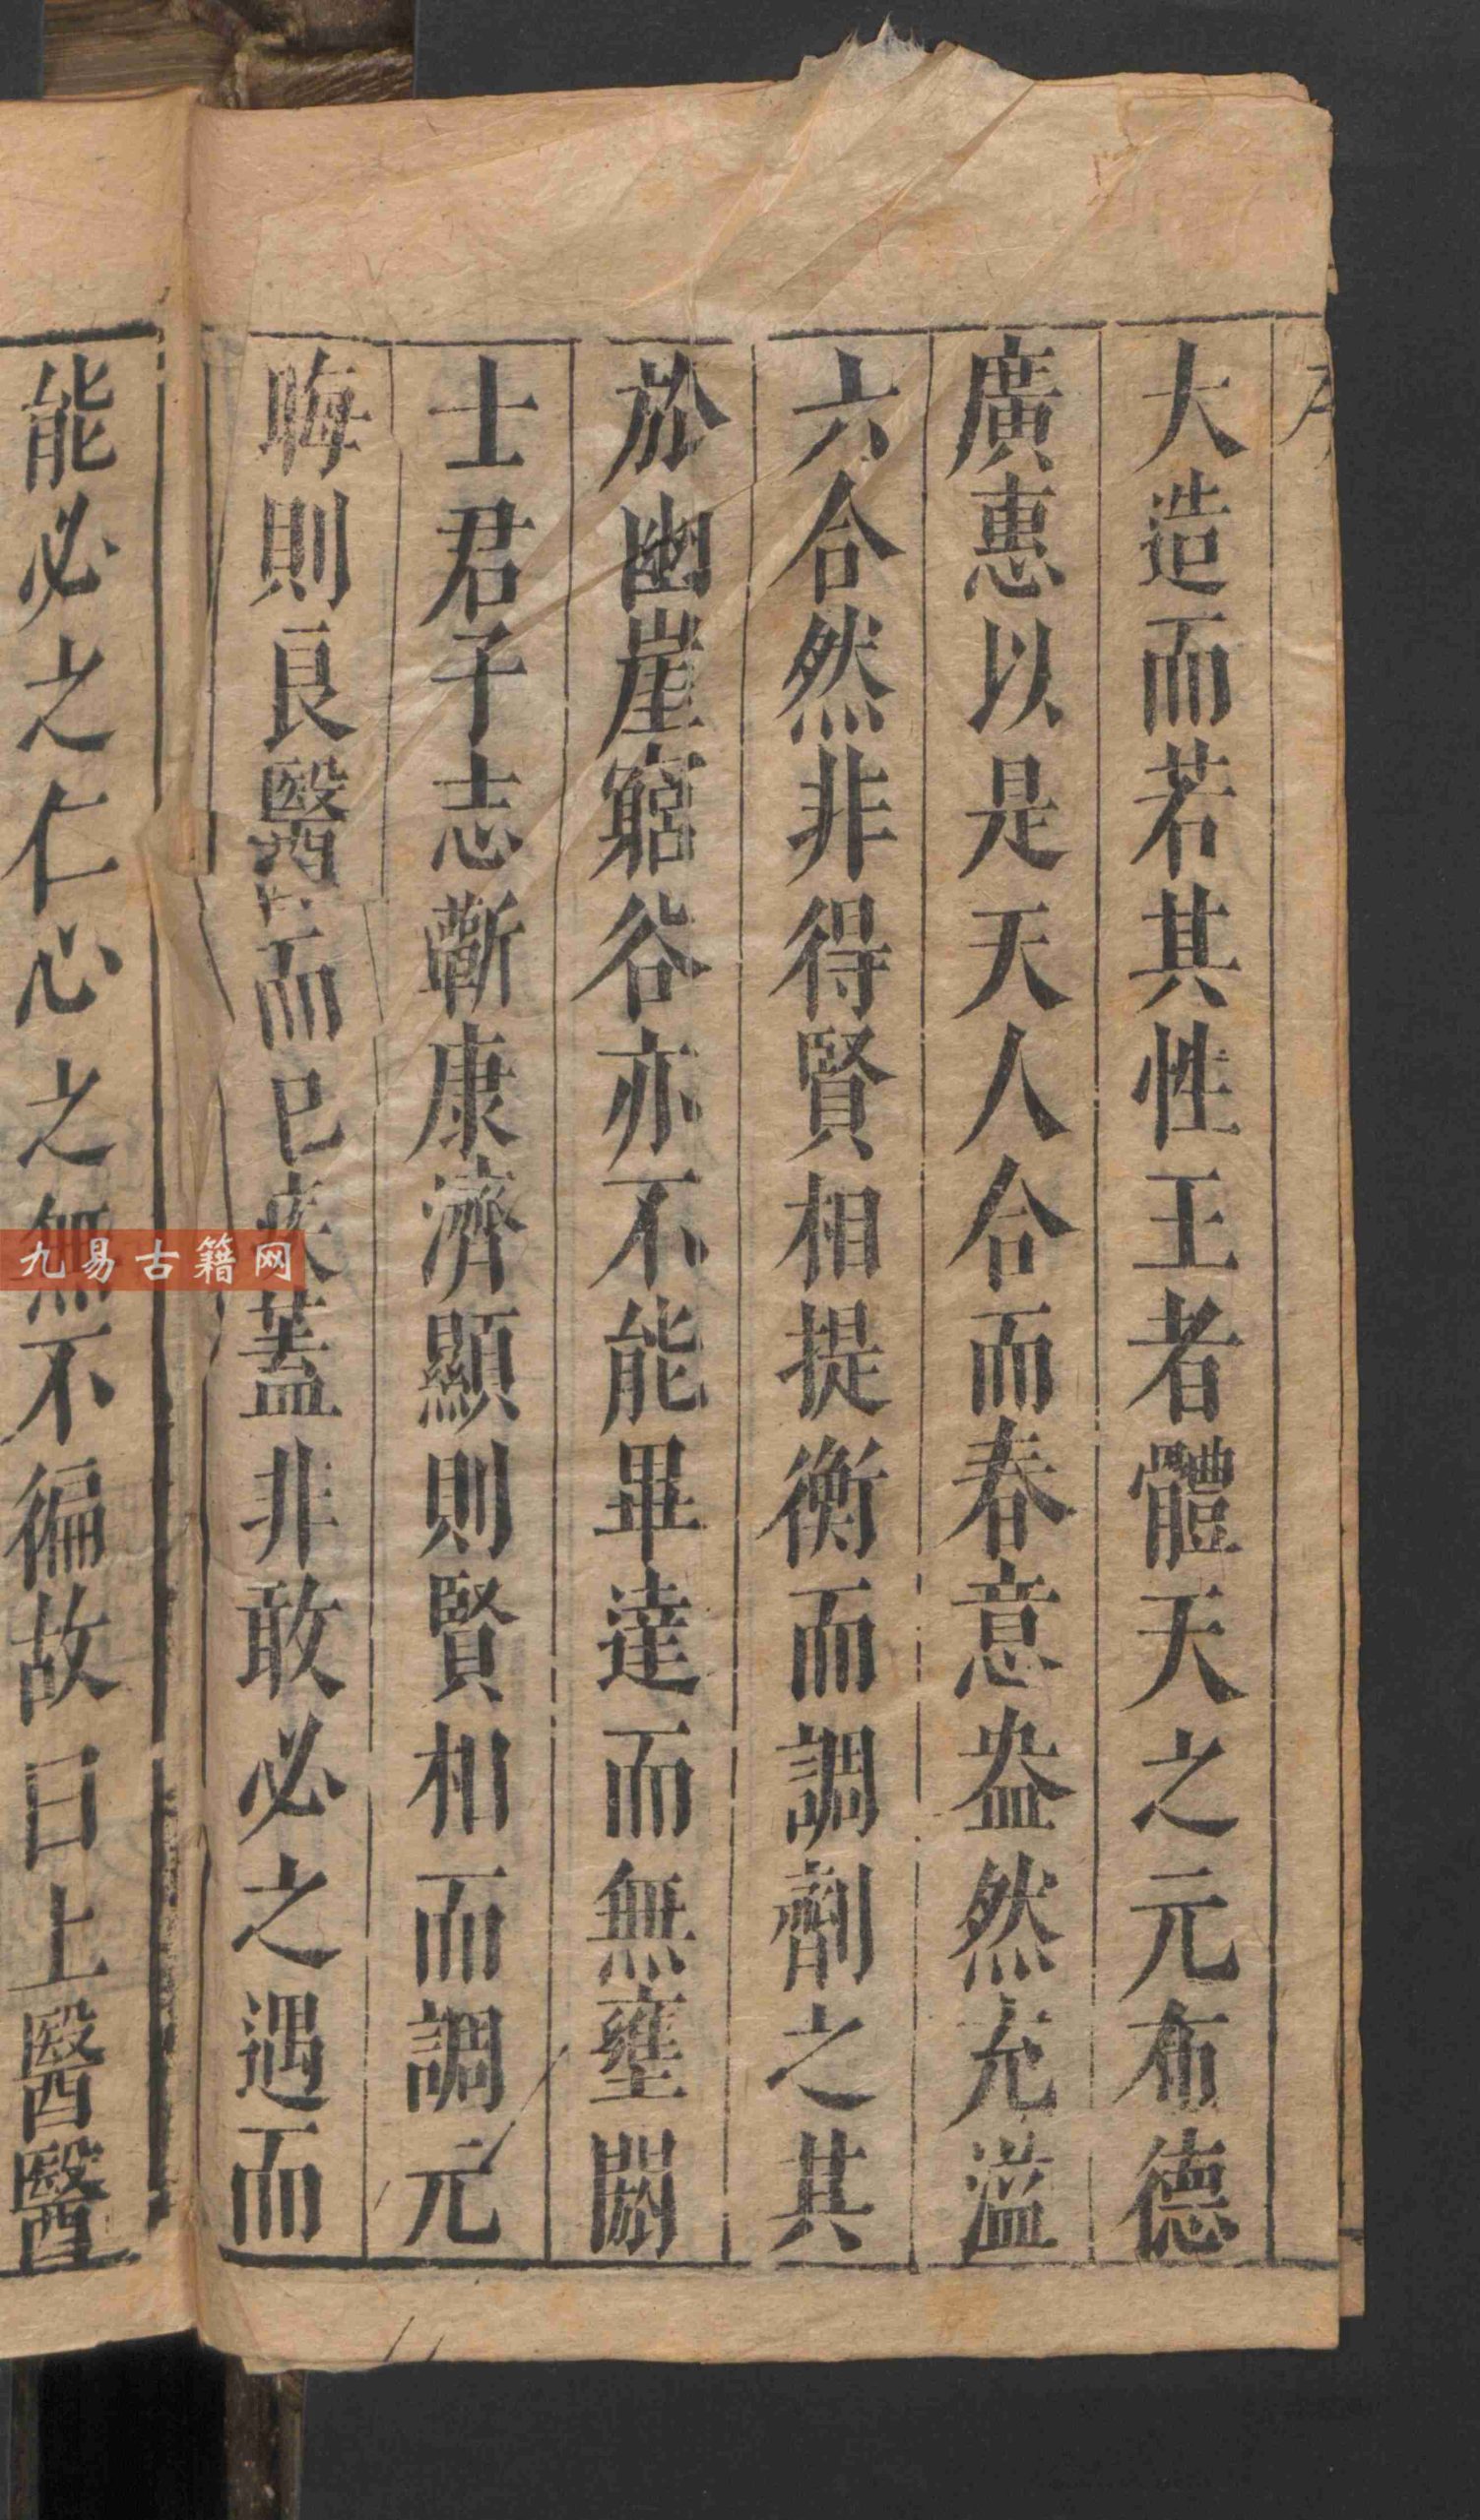 大造而若其性王者體天之元布德
廣惠以是天人合而春意盎然充溢
六合然非得賢相提衡而調劑之其
於幽崖窮谷亦不能畢達而無壅閼
士君子志蘄康濟顯則賢相而調元
晦則良醫而已疾蓋非敢必之遇而
能必之仁心之無不徧故曰上醫醫
九易古籍网